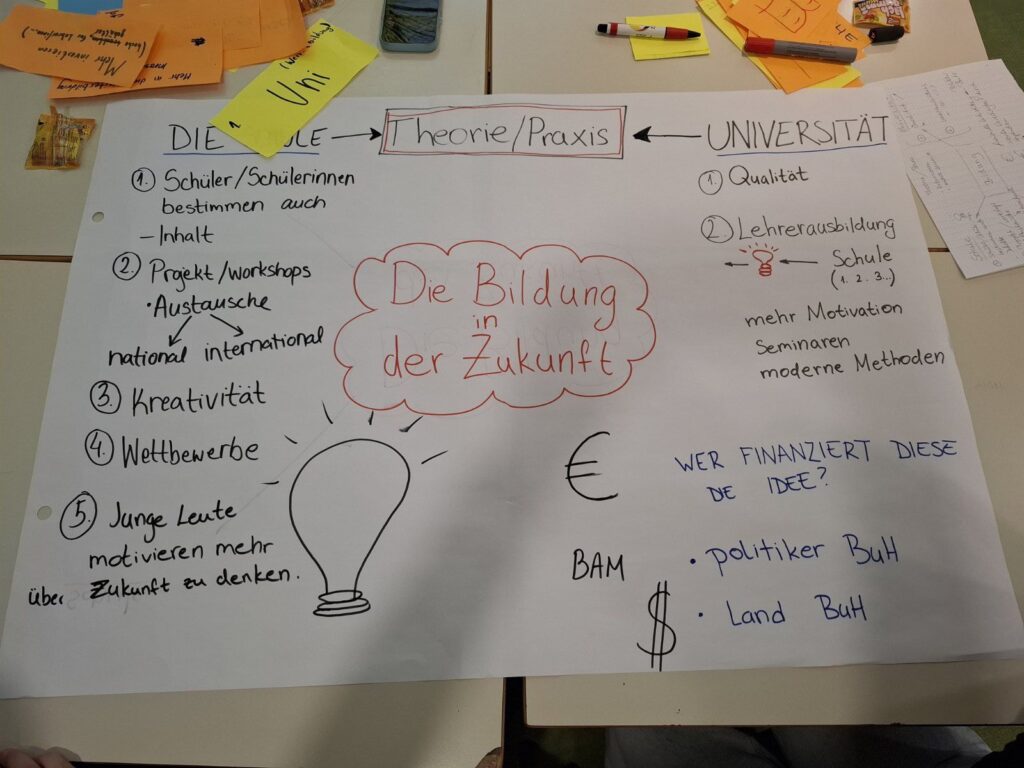 Mehr investieren
Uni
DIE
Theorie/Praxis
UNIVERSITÄT
1. Schüler/Schülerinnen
bestimmen auch
– Inhalt
2. Projekt/workshops
• Austausche
national international
3. Kreativität
4. Wettbewerbe
5. Junge Leute
motivieren mehr
über Zukunft zu denken.
Die Bildung
in
der Zukunft
1. Qualität
2. Lehrerausbildung
Schule
(1. 2. 3...)
mehr Motivation
Seminaren
moderne Methoden
€
WER FINANZIERT DIESE
DIE IDEE?
BAM
$
• politiker BuH
• Land BuH